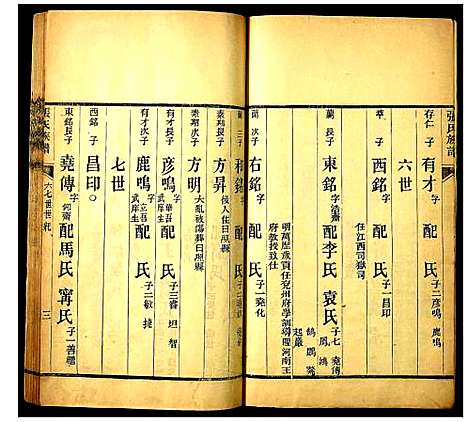 張氏族譜
存仁 子 有才 字 配 氏 子二 彥鳴 鹿鳴
六世
西銘 字 配 氏 子一 昌印
任江西司獄司
蘭 長子 東銘 字 配李氏 袁氏 子七 堯傳
明萬歷歲貢任兗州府學訓導陞河南王
府教授致仕
子 右銘 字 配 氏 子一 堯化
三子 和銘 字 配 氏
春期長子 方昇 後人住日照縣
春期次子 方明 大亂被傷葬日照縣
有才長子 彥鳴 字 武庠生 配 氏 子三 睿 坦 智
有才次子 鹿鳴 字 武庠生 配 氏 子二 敏 捷
七世
西銘 子 昌印
東銘長子 堯傳 字 配馬氏 甯氏 子一 善繼
張氏族譜
六七世世紀
三